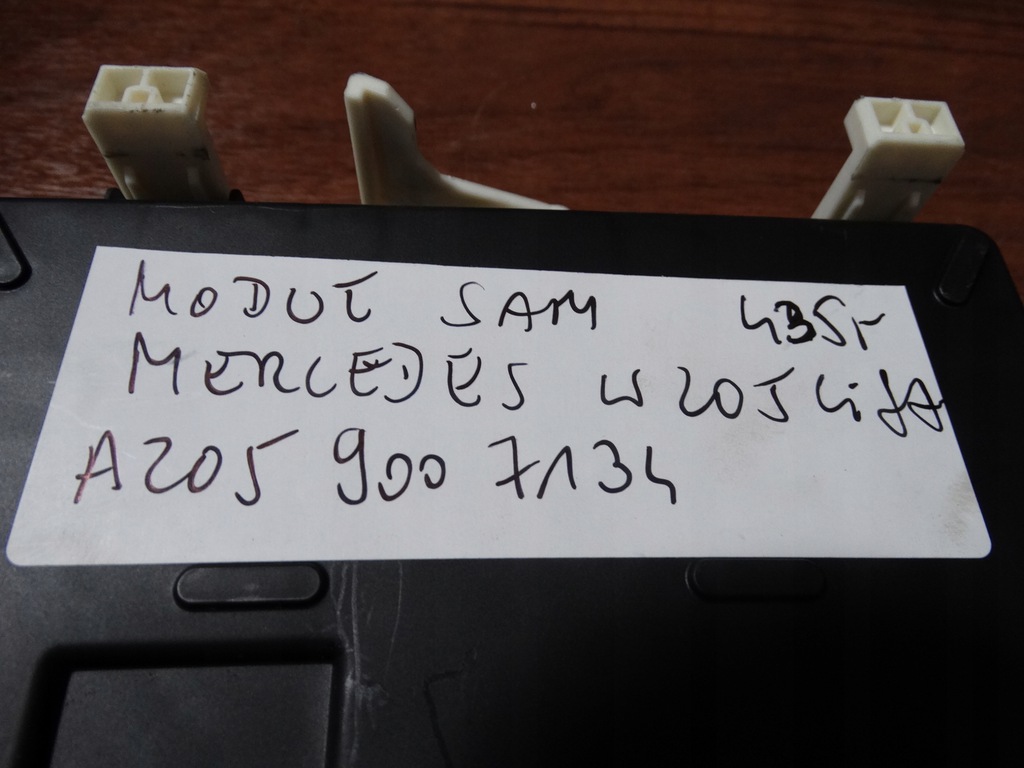 MODUŁ SAM 435r
MERCEDES W205 Lift
A205 900 7134